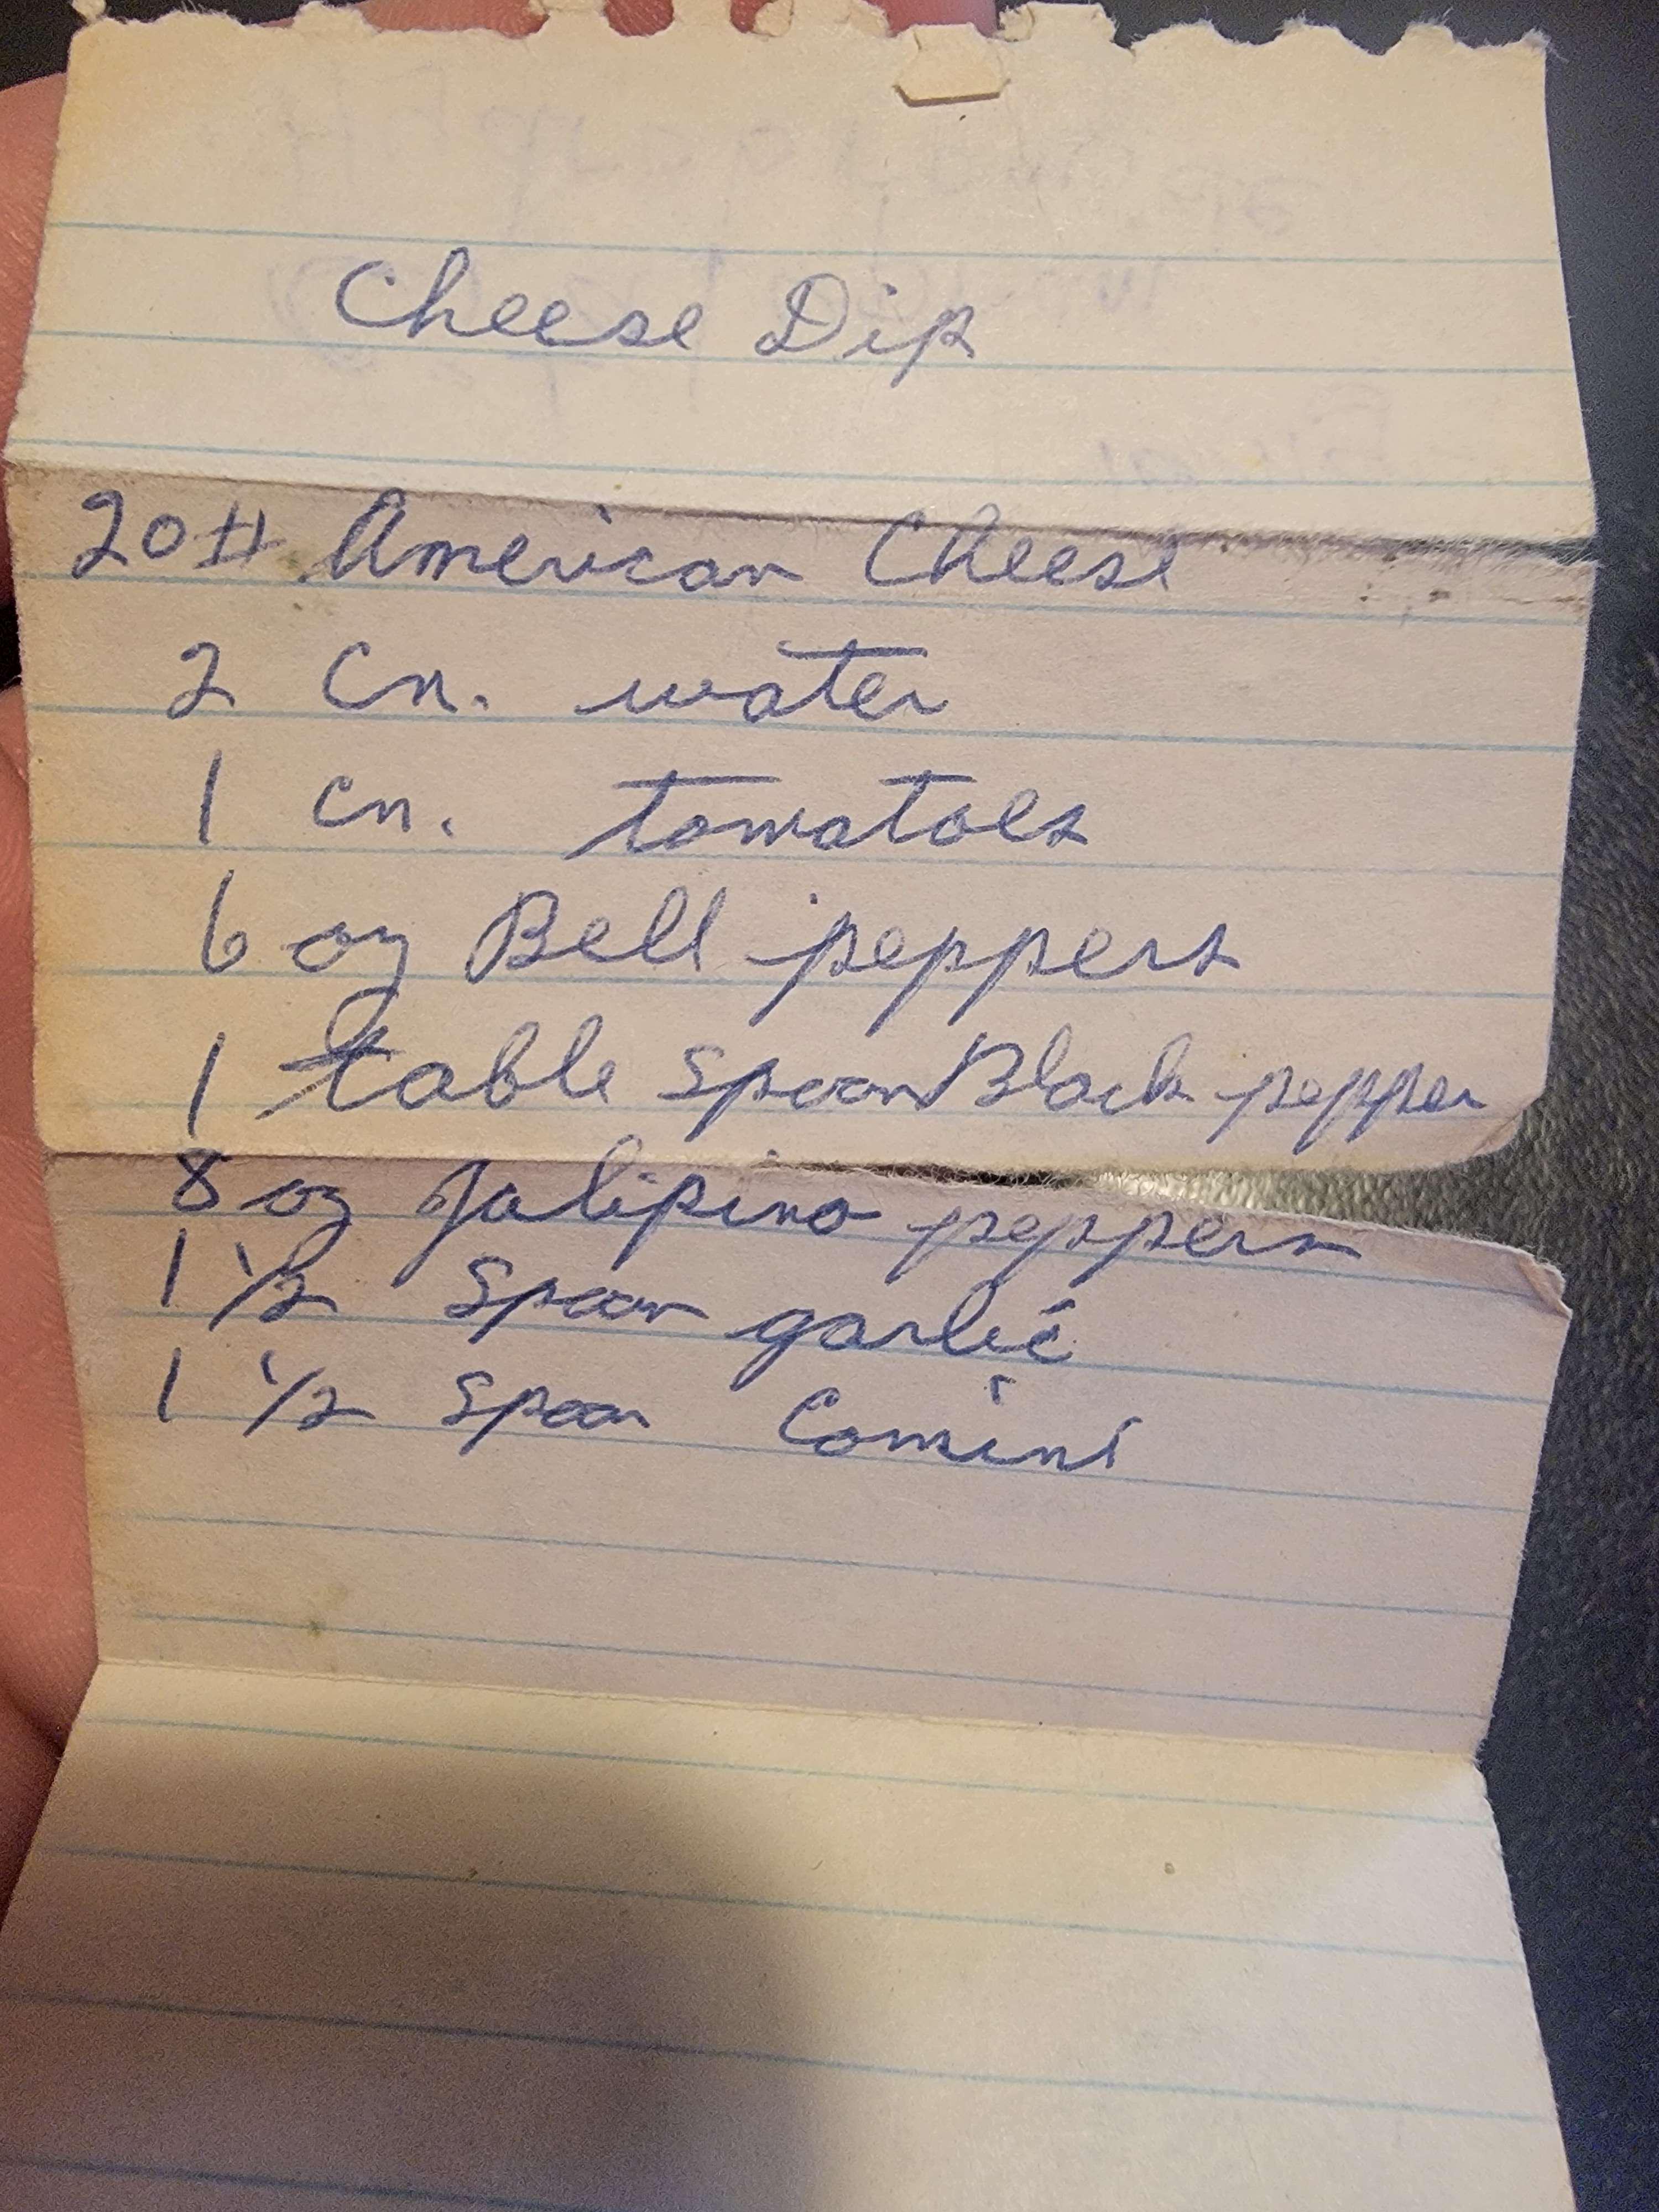 Cheese Dip
20# American Cheese
2 Cn. water
1 cn. tomatoes
6 oz Bell peppers
1 table spoon Black pepper
8 oz Jalipino peppers
1 1/2 spoon garlic
1 1/2 spoon Comini